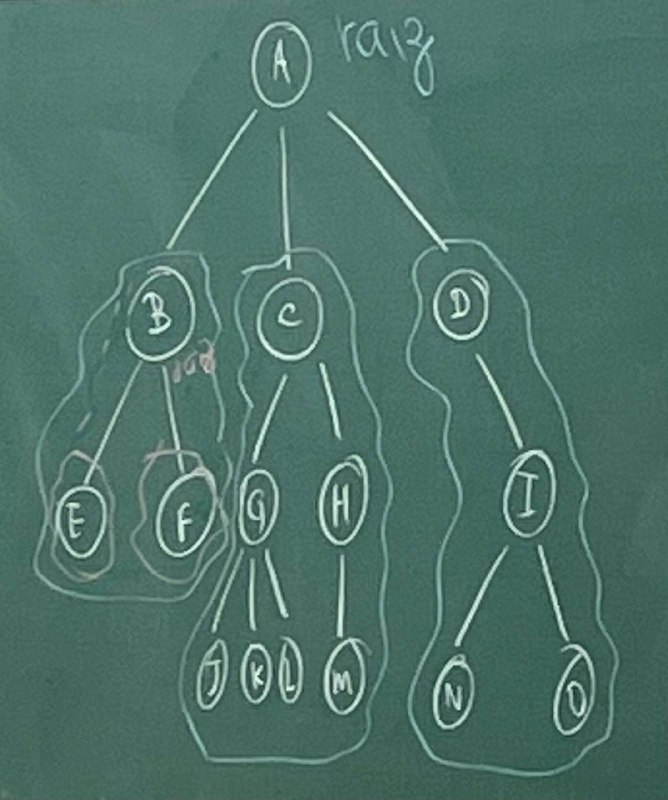 A raiz
B C D
E F G H I
J K L M N O